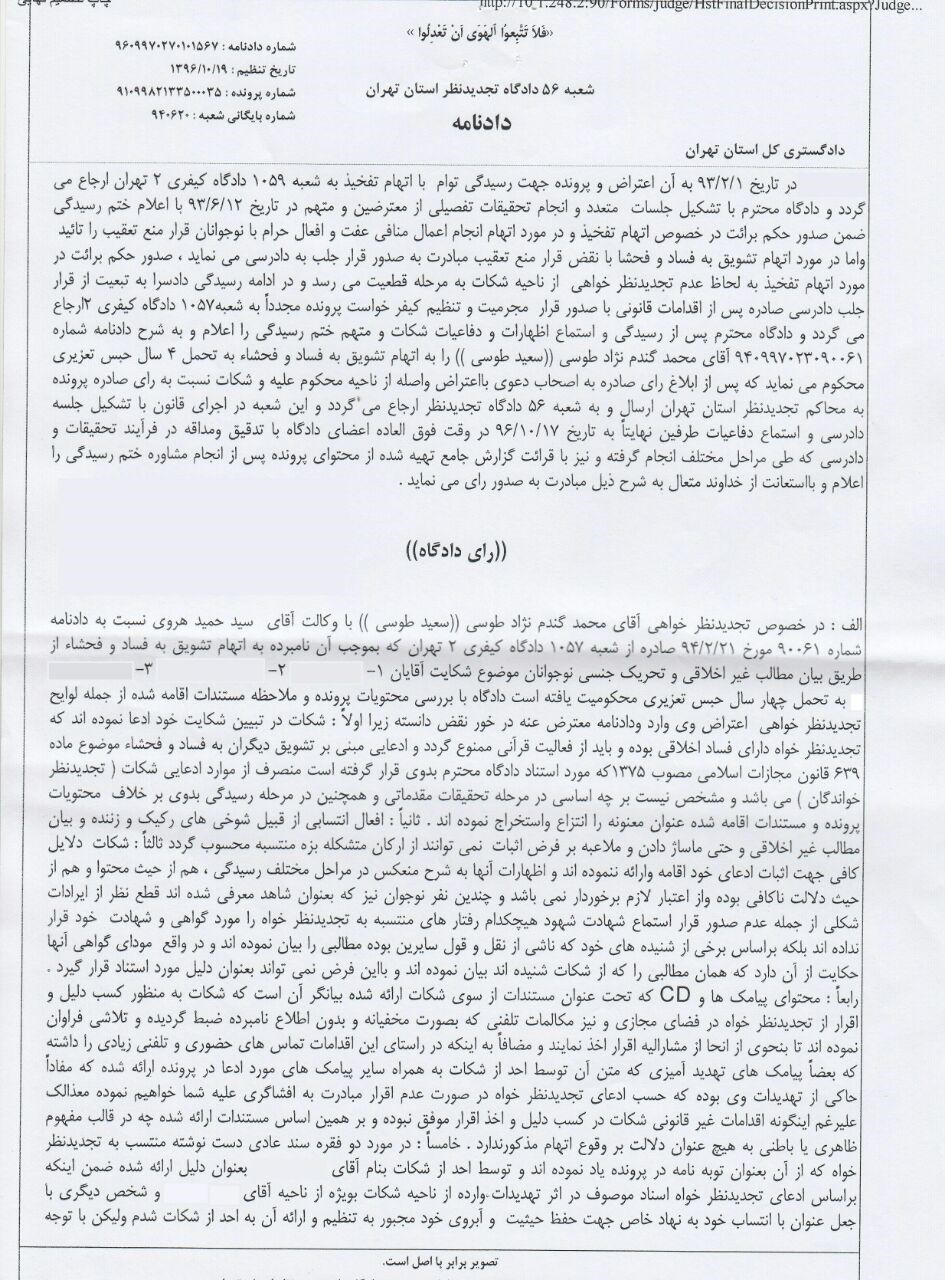 چاپ تصمیم نهایی
http://10.1.248.2:90/Forms/judge/HstFinalDecisionPrint.aspx?Judge...
«فَلاَ تَتَّبِعوُا اَلهَوَی اَنْ تَعْدِلُوا »
شماره دادنامه : ۹۶۰۹۹۷۰۲۷۰۱۰۱۵۶۷
تاریخ تنظیم : ۱۳۹۶/۱۰/۱۹
شماره پرونده : ۹۱۰۹۹۸۲۱۳۳۵۰۰۰۳۵
شماره بایگانی شعبه : ۹۴۰۶۲۰
شعبه ۵۶ دادگاه تجدیدنظر استان تهران
دادنامه
دادگستری کل استان تهران
در تاریخ ۹۳/۲/۱ به آن اعتراض و پرونده جهت رسیدگی توام با اتهام تفخیذ به شعبه ۱۰۵۹ دادگاه کیفری ۲ تهران ارجاع می
گردد و دادگاه محترم با تشکیل جلسات متعدد و انجام تحقیقات تفصیلی از معترضین و متهم در تاریخ ۹۳/۶/۱۲ با اعلام ختم رسیدگی
ضمن صدور حکم برائت در خصوص اتهام تفخیذ و در مورد اتهام انجام اعمال منافی عفت و افعال حرام با نوجوانان قرار منع تعقیب را تائید
واما در مورد اتهام تشویق به فساد و فحشا با نقض قرار منع تعقیب مبادرت به صدور قرار جلب به دادرسی می نماید ، صدور حکم برائت در
مورد اتهام تفخیذ به لحاظ عدم تجدیدنظر خواهی از ناحیه شکات به مرحله قطعیت می رسد و در ادامه رسیدگی دادسرا به تبعیت از قرار
جلب دادرسی صادره پس از اقدامات قانونی با صدور قرار مجرمیت و تنظیم کیفر خواست پرونده مجدداً به شعبه۱۰۵۷ دادگاه کیفری ۲ارجاع
می گردد و دادگاه محترم پس از رسیدگی و استماع اظهارات و دفاعیات شکات و متهم ختم رسیدگی را اعلام و به شرح دادنامه شماره
۹۴۰۹۹۷۰۲۳۰۹۰۰۶۱ آقای محمد گندم نژاد طوسی ((سعید طوسی )) را به اتهام تشویق به فساد و فحشاء به تحمل ۴ سال حبس تعزیری
محکوم می نماید که پس از ابلاغ رای صادره به اصحاب دعوی بااعتراض واصله از ناحیه محکوم علیه و شکات نسبت به رای صادره پرونده
به محاکم تجدیدنظر استان تهران ارسال و به شعبه ۵۶ دادگاه تجدیدنظر ارجاع می گردد و این شعبه در اجرای قانون با تشکیل جلسه
دادرسی و استماع دفاعیات طرفین نهایتاً به تاریخ ۹۶/۱۰/۱۷ در وقت فوق العاده اعضای دادگاه با تدقیق ومداقه در فرآیند تحقیقات و
دادرسی که طی مراحل مختلف انجام گرفته و نیز با قرائت گزارش جامع تهیه شده از محتوای پرونده پس از انجام مشاوره ختم رسیدگی را
اعلام و بااستعانت از خداوند متعال به شرح ذیل مبادرت به صدور رای می نماید .
((رای دادگاه))
الف : در خصوص تجدیدنظر خواهی آقای محمد گندم نژاد طوسی ((سعید طوسی )) با وکالت آقای سید حمید هروی نسبت به دادنامه
شماره ۹۰۰۶۱ مورخ ۹۴/۲/۲۱ صادره از شعبه ۱۰۵۷ دادگاه کیفری ۲ تهران که بموجب آن نامبرده به اتهام تشویق به فساد و فحشاء از
طریق بیان مطالب غیر اخلاقی و تحریک جنسی نوجوانان موضوع شکایت آقایان ۱- ۲- ۳-
به تحمل چهار سال حبس تعزیری محکومیت یافته است دادگاه با بررسی محتویات پرونده و ملاحظه مستندات اقامه شده از جمله لوایح
تجدیدنظر خواهی اعتراض وی وارد ودادنامه معترض عنه در خور نقض دانسته زیرا اولاً : شکات در تبیین شکایت خود ادعا نموده اند که
تجدیدنظر خواه دارای فساد اخلاقی بوده و باید از فعالیت قرآنی ممنوع گردد و ادعایی مبنی بر تشویق دیگران به فساد و فحشاء موضوع ماده
۶۳۹ قانون مجازات اسلامی مصوب ۱۳۷۵که مورد استناد دادگاه محترم بدوی قرار گرفته است منصرف از موارد ادعایی شکات ( تجدیدنظر
خواندگان ) می باشد و مشخص نیست بر چه اساسی در مرحله تحقیقات مقدماتی و همچنین در مرحله رسیدگی بدوی بر خلاف محتویات
پرونده و مستندات اقامه شده عنوان معنونه را انتزاع واستخراج نموده اند . ثانیاً : افعال انتسابی از قبیل شوخی های رکیک و زننده و بیان
مطالب غیر اخلاقی و حتی ماساژ دادن و ملاعبه بر فرض اثبات نمی توانند از ارکان متشکله بزه منتسبه محسوب گردد ثالثاً : شکات دلایل
کافی جهت اثبات ادعای خود اقامه وارائه ننموده اند و اظهارات آنها به شرح منعکس در مراحل مختلف رسیدگی ، هم از حیث محتوا و هم از
حیث دلالت ناکافی بوده واز اعتبار لازم برخوردار نمی باشد و چندین نفر نوجوان نیز که بعنوان شاهد معرفی شده اند قطع نظر از ایرادات
شکلی از جمله عدم صدور قرار استماع شهادت شهود هیچکدام رفتار های منتسبه به تجدیدنظر خواه را مورد گواهی و شهادت خود قرار
نداده اند بلکه براساس برخی از شنیده های خود که ناشی از نقل و قول سایرین بوده مطالبی را بیان نموده اند و در واقع مودای گواهی آنها
حکایت از آن دارد که همان مطالبی را که از شکات شنیده اند بیان نموده اند و بااین فرض نمی تواند بعنوان دلیل مورد استناد قرار گیرد .
رابعاً : محتوای پیامک ها و CD که تحت عنوان مستندات از سوی شکات ارائه شده بیانگر آن است که شکات به منظور کسب دلیل و
اقرار از تجدیدنظر خواه در فضای مجازی و نیز مکالمات تلفنی که بصورت مخفیانه و بدون اطلاع نامبرده ضبط گردیده و تلاشی فراوان
نموده اند تا بنحوی از انحا از مشارالیه اقرار اخذ نمایند و مضافاً به اینکه در راستای این اقدامات تماس های حضوری و تلفنی زیادی را داشته
که بعضاً پیامک های تهدید آمیزی که متن آن توسط احد از شکات به همراه سایر پیامک های مورد ادعا در پرونده ارائه شده که مفاداً
حاکی از تهدیدات وی بوده که حسب ادعای تجدیدنظر خواه در صورت عدم اقرار مبادرت به افشاگری علیه شما خواهیم نموده معذالک
علیرغم اینگونه اقدامات غیر قانونی شکات در کسب دلیل و اخذ اقرار موفق نبوده و بر همین اساس مستندات ارائه شده چه در قالب مفهوم
ظاهری یا باطنی به هیچ عنوان دلالت بر وقوع اتهام مذکورندارد . خامساً : در مورد دو فقره سند عادی دست نوشته منتسب به تجدیدنظر
خواه که از آن بعنوان توبه نامه در پرونده یاد نموده اند و توسط احد از شکات بنام آقای بعنوان دلیل ارائه شده ضمن اینکه
براساس ادعای تجدیدنظر خواه اسناد موصوف در اثر تهدیدات وارده از ناحیه شکات بویژه از ناحیه آقای و شخص دیگری با
جعل عنوان با انتساب خود به نهاد خاص جهت حفظ حیثیت و آبروی خود مجبور به تنظیم و ارائه آن به احد از شکات شدم ولیکن با توجه
تصویر برابر با اصل است.